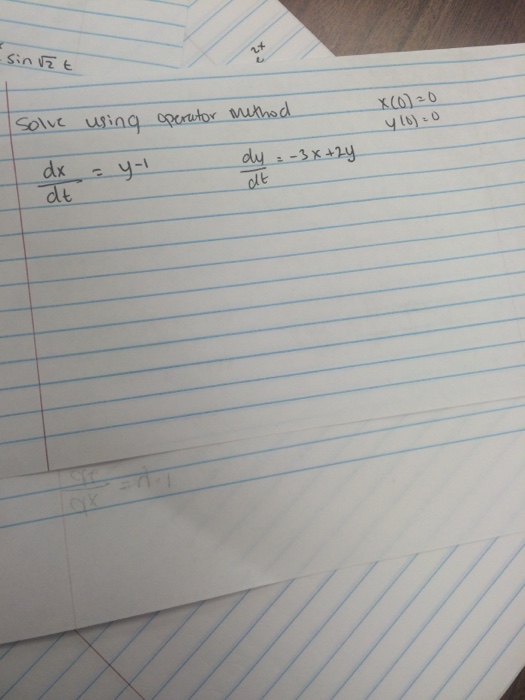 sin √2 t
2t
Solve using operator method
x(0)=0
y(0)=0
dx/dt = y-1
dy/dt = -3x+2y